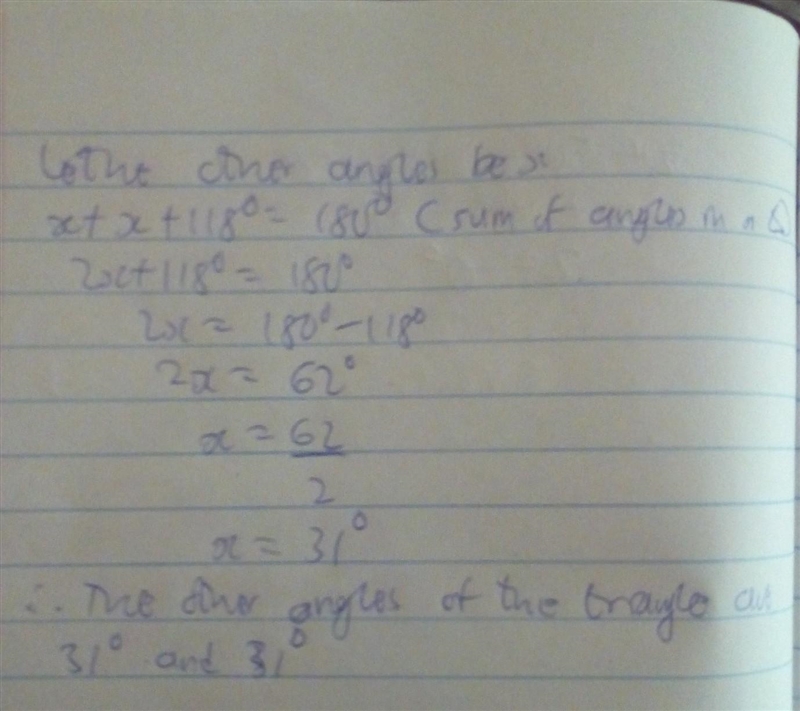 Let the other angles be x
x + x + 118° = 180° (sum of angles in a Δ)
2x + 118° = 180°
2x = 180° - 118°
2x = 62°
x = 62
2
x = 31°
∴ The other angles of the are
31° and 31°